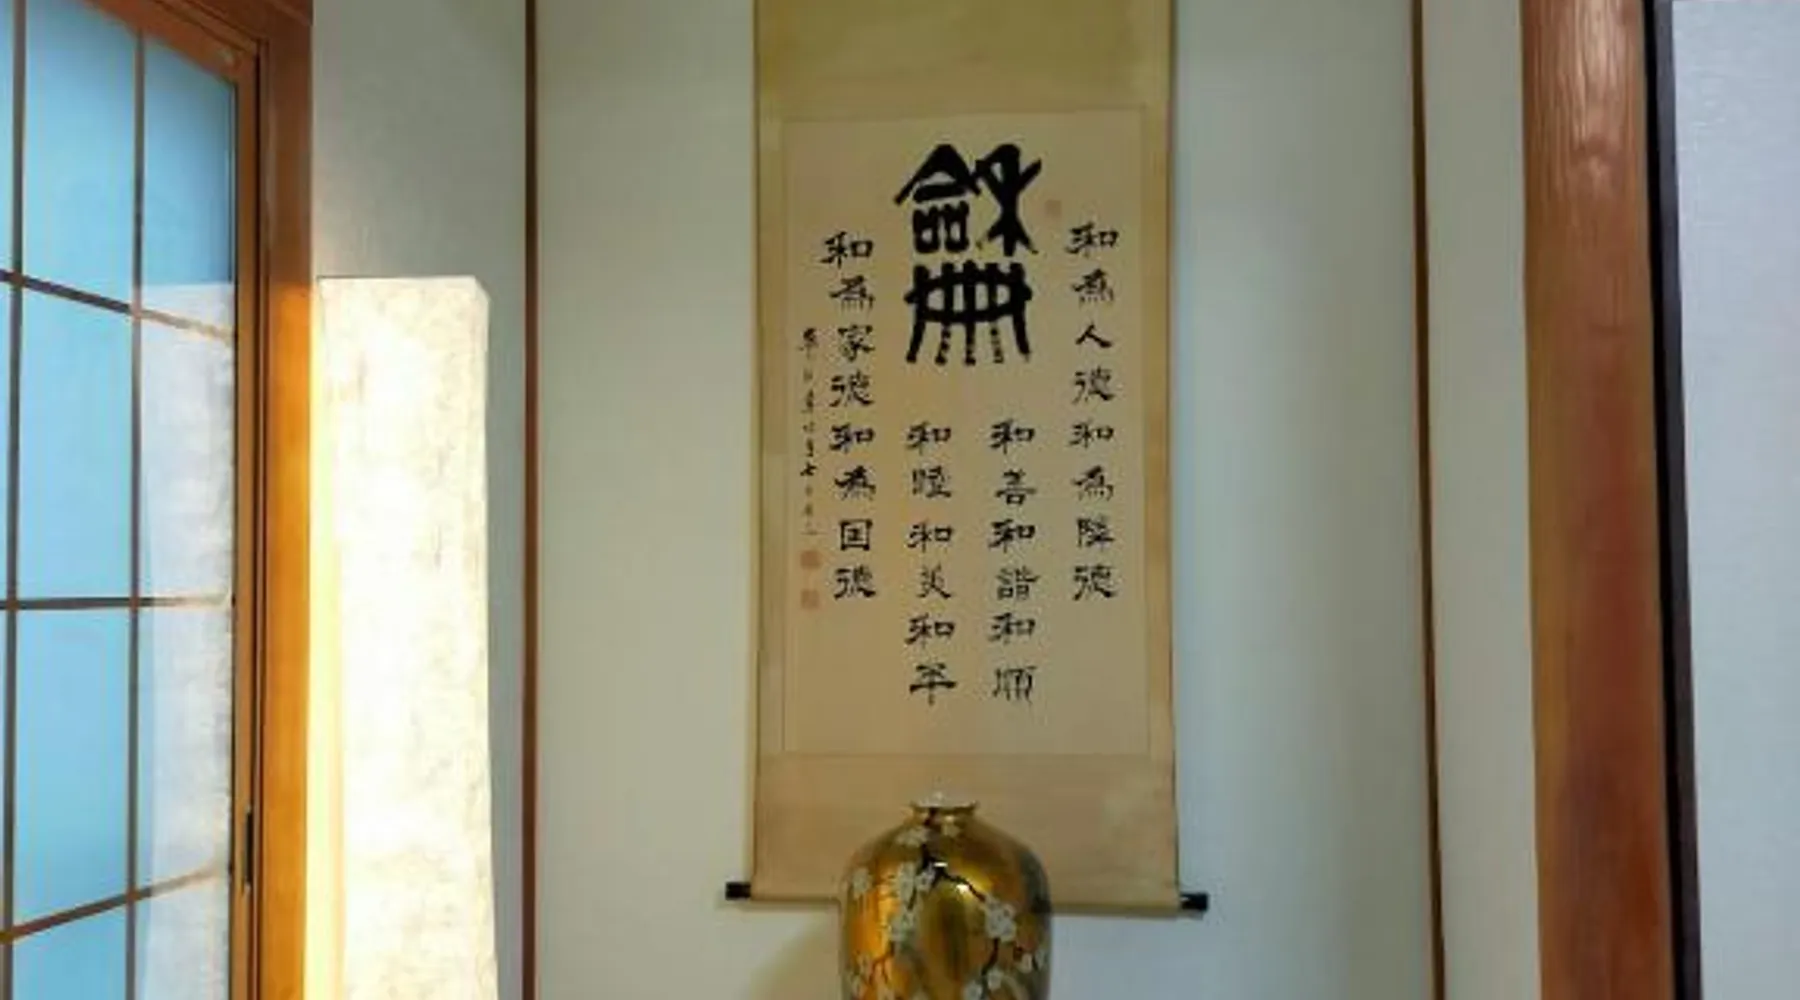 龢
和為人德和為隣德
和善和諧和順
和睦和美和平
和為家德和為国德